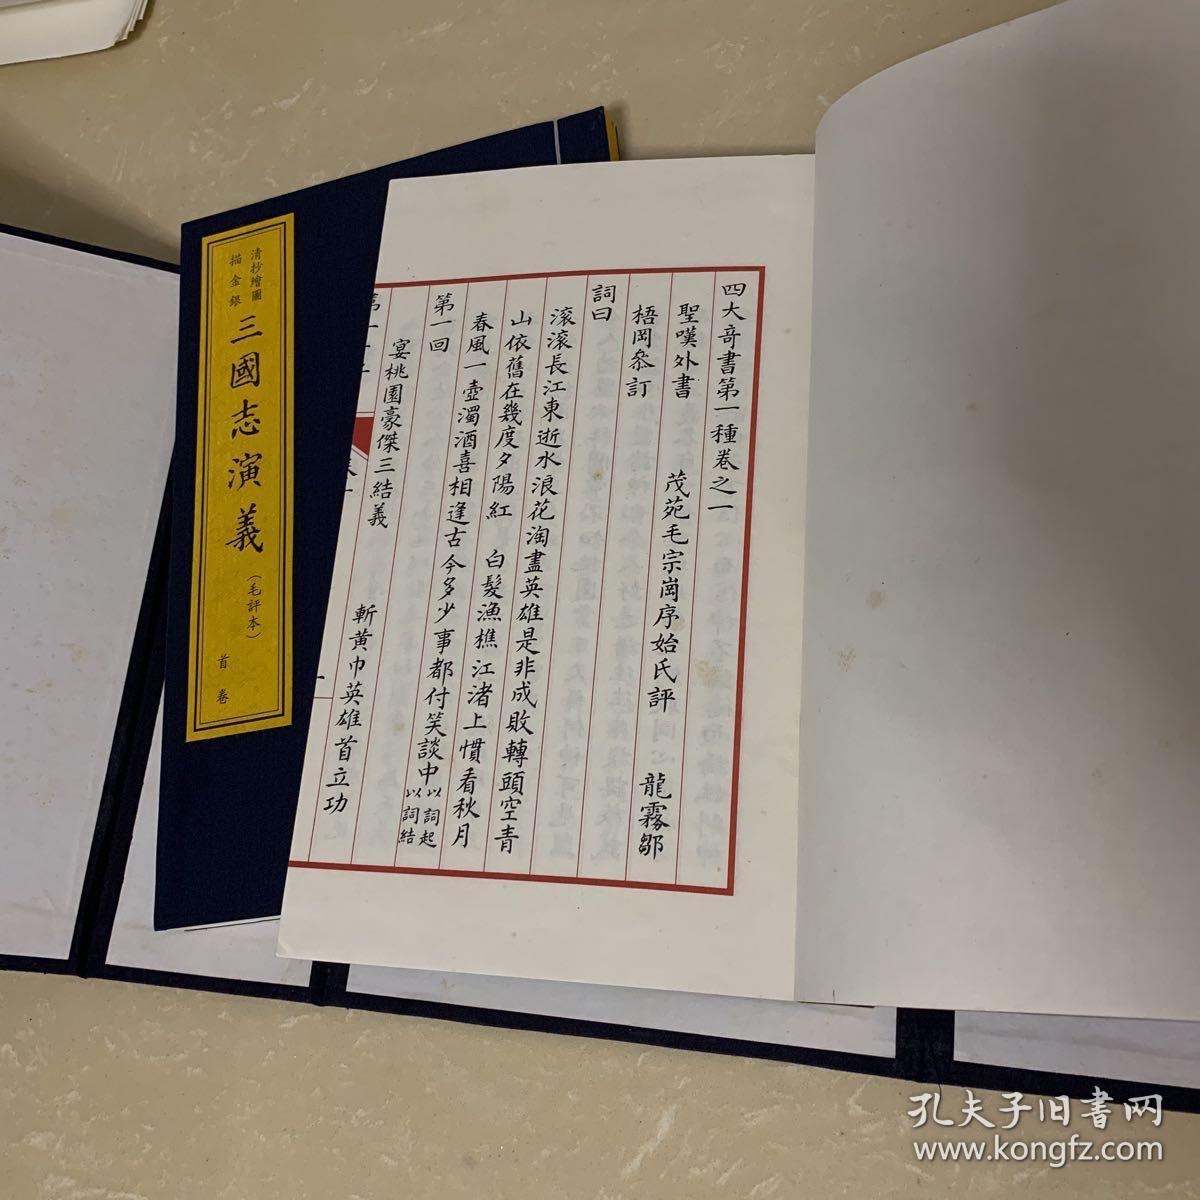 清抄繪圖
描金銀
三國志演義
（毛評本）
首卷
四大奇書第一種卷之一
聖嘆外書 茂苑毛宗崗序始氏評
梧岡叅訂 龍霧鄒
詞曰
滚滚長江東逝水浪花淘盡英雄是非成敗轉頭空青
山依舊在幾度夕陽紅 白髮漁樵江渚上慣看秋月
春風一壺濁酒喜相逢古今多少事都付笑談中以詞起
以詞結
第一回
宴桃園豪傑三結義
斬黄巾英雄首立功
孔夫子旧书网
www.kongfz.com